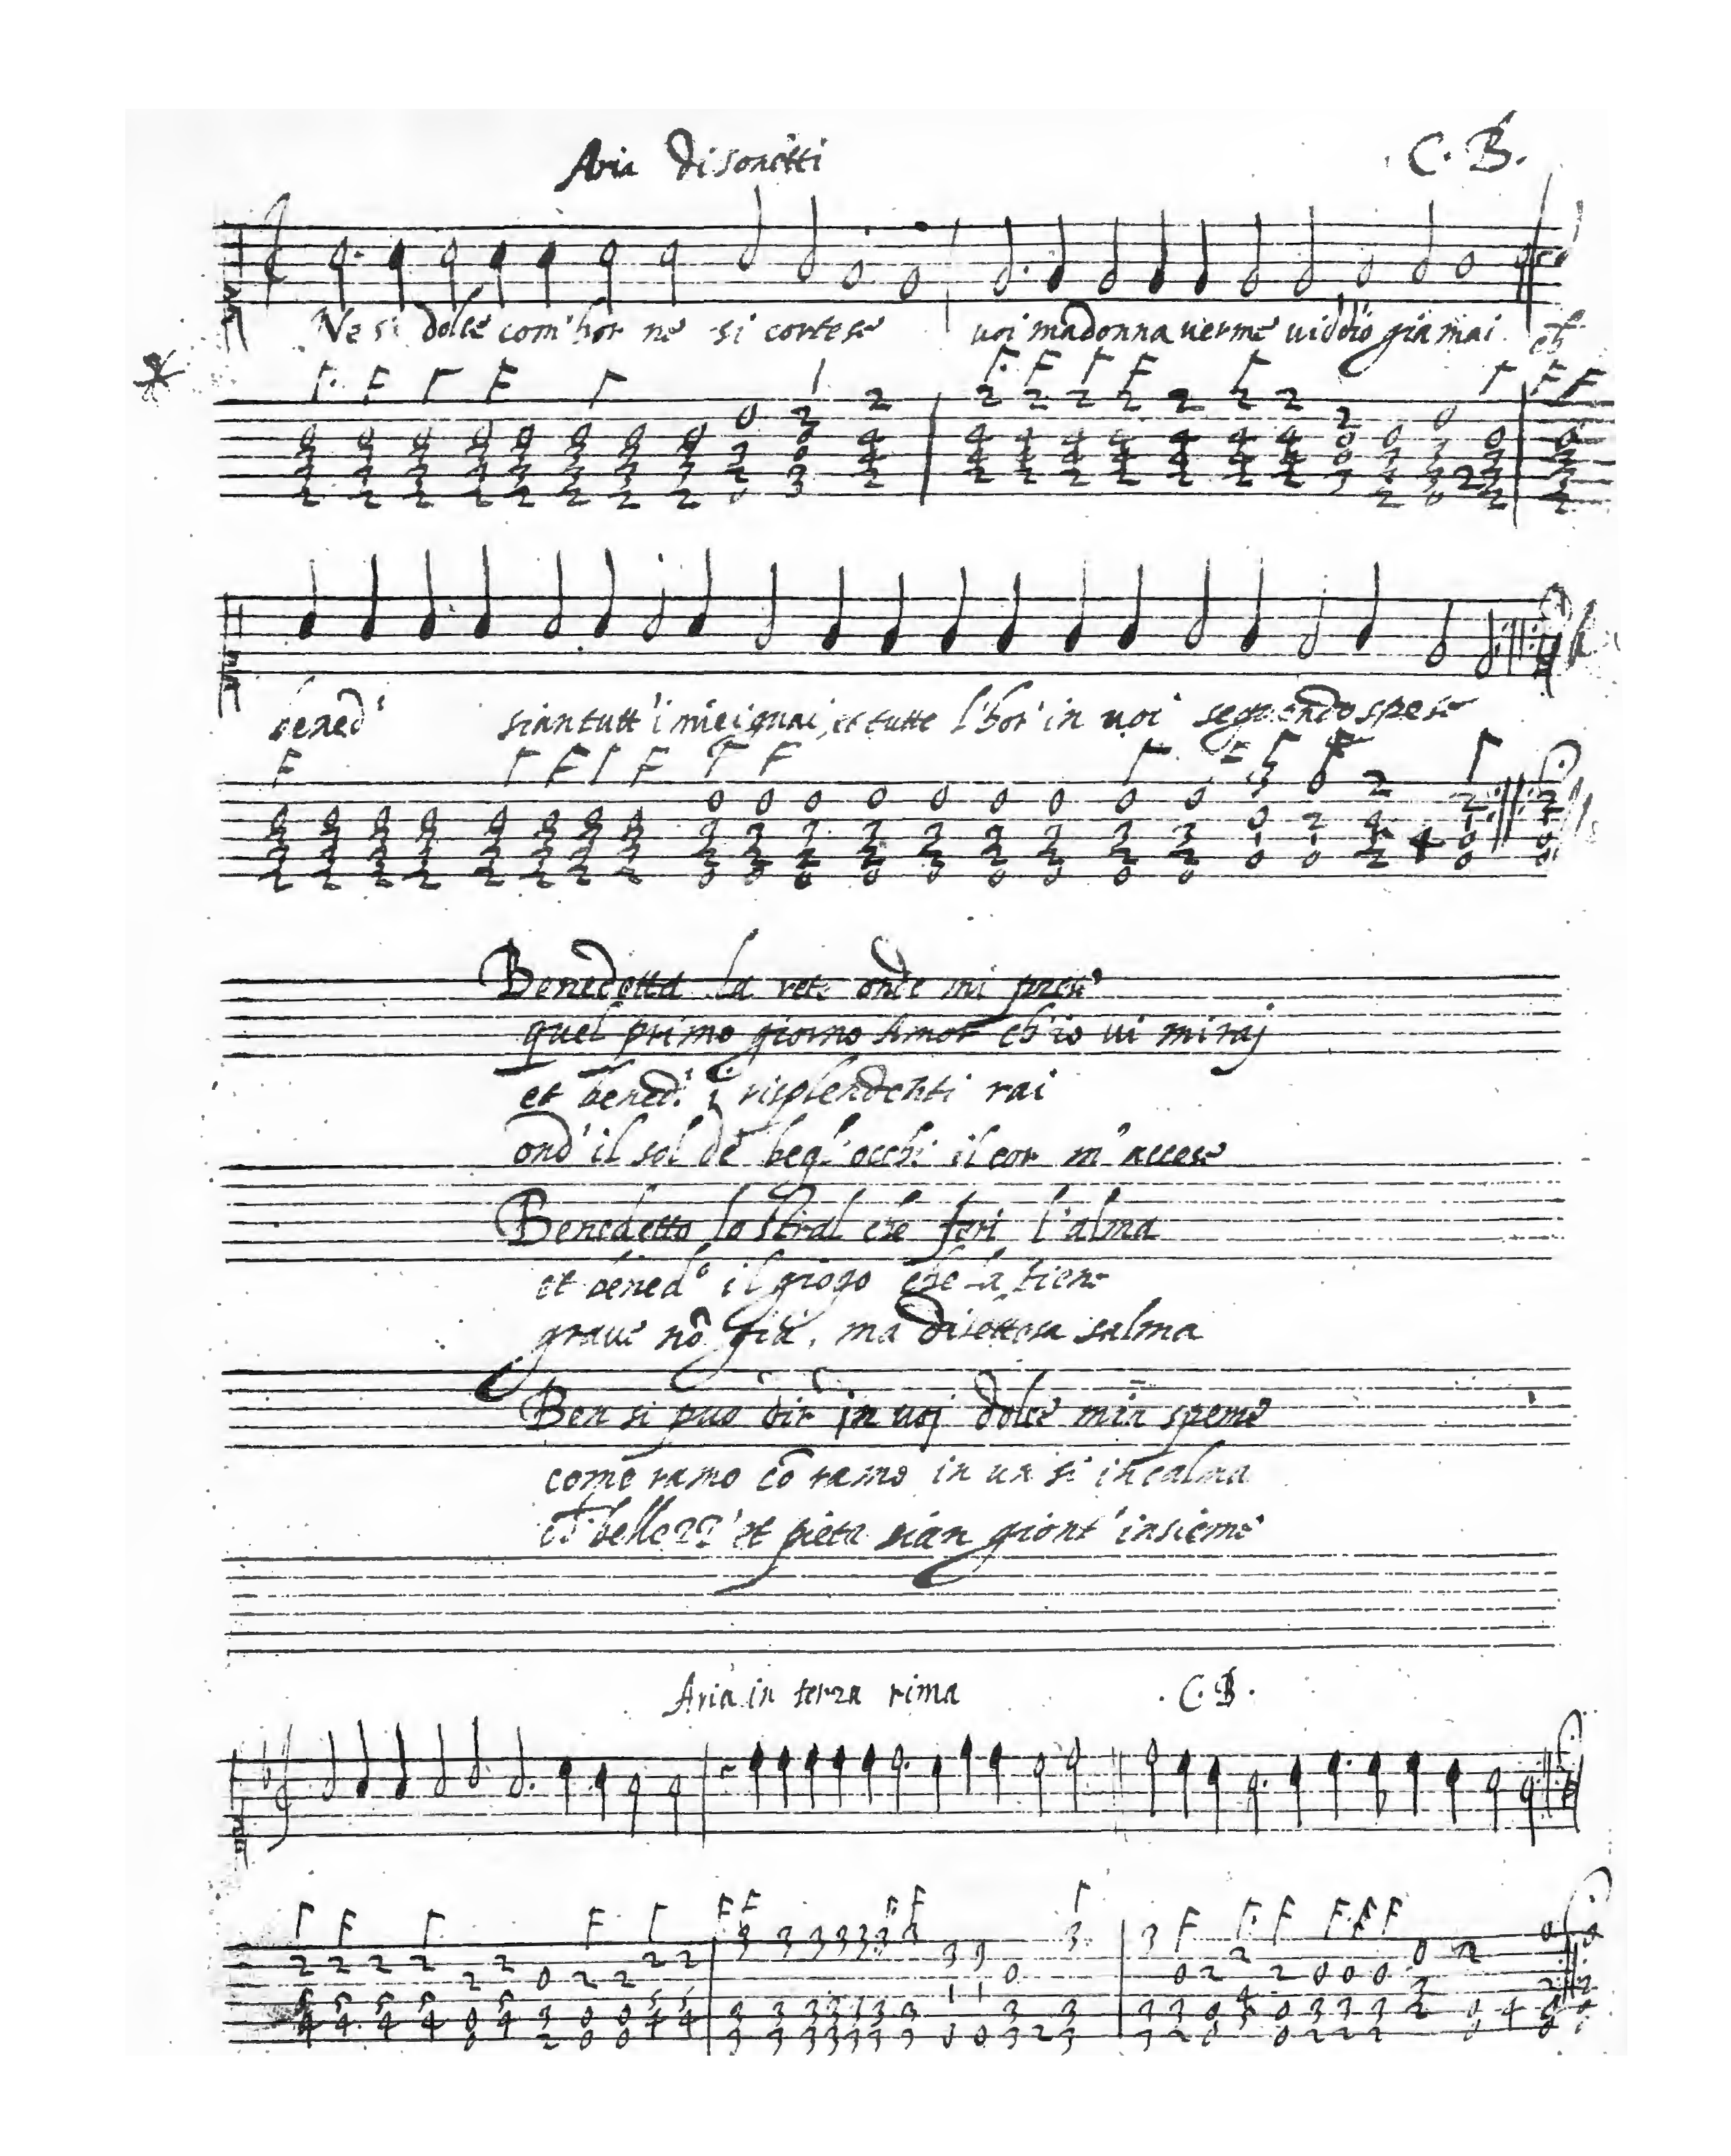 Aria di sonetti
C. B.
Ne si dolce com'hor ne si cortese voi madonna verme vidd'io gia mai ch
bened' sian tutt'i miei guai, et tutte l'hor' in voi seguendo spese
Benedetta la rete onde mi prese
quel primo giorno Amor ch'io vi miraj
et bened' i risplendenti rai
ond'il sol de begl'occhi il cor m'accese
Benedetto lo stral che feri l'alma
et bened° il giogo che la tiene
grave nō gia, ma dilettosa salma
Ben si puo dir in voj dolce mia speme
come ramo cō ramo in un si incalma
ch' bellezz'et pieta sian giont'insieme
Aria in terza rima
. C. B.